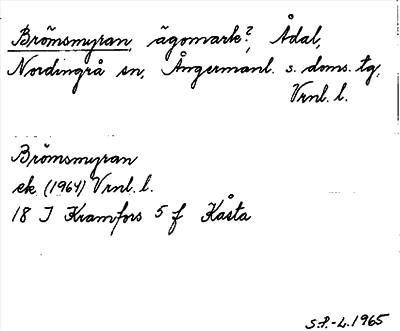 Brömsmyran, ägomark?, Ådal,
Nordingrå sn, Ångermanl. s. doms. tg,
Vrnl. l.
Brömsmyran
ek. (1964) Vrnl. l.
18 I Kramfors 5 f Kåsta
S.P.-L. 1965